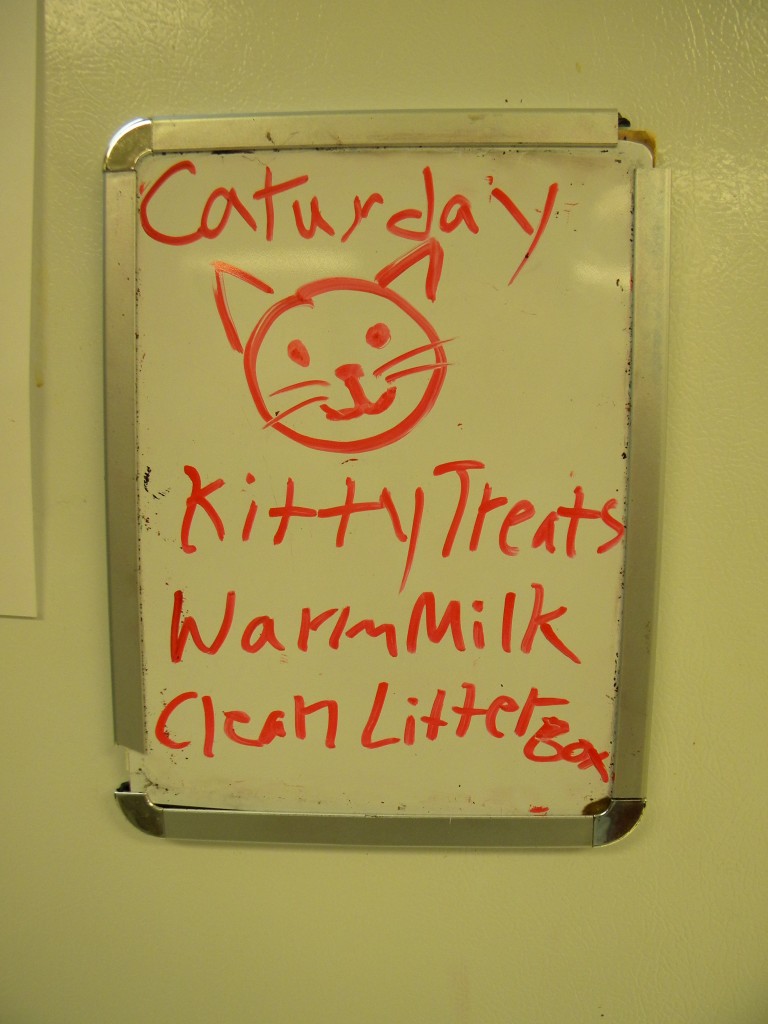 Caturday
Kitty Treats
Warm Milk
Clean Litter Box